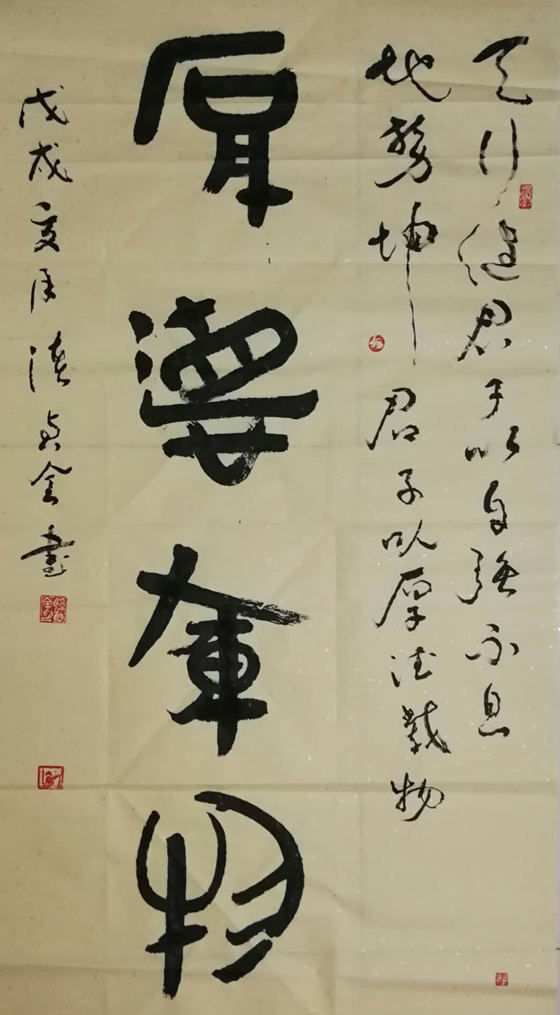 天行健君子以自強不息
地勢坤君子以厚德載物
厚德載物
戊戌夏月金書